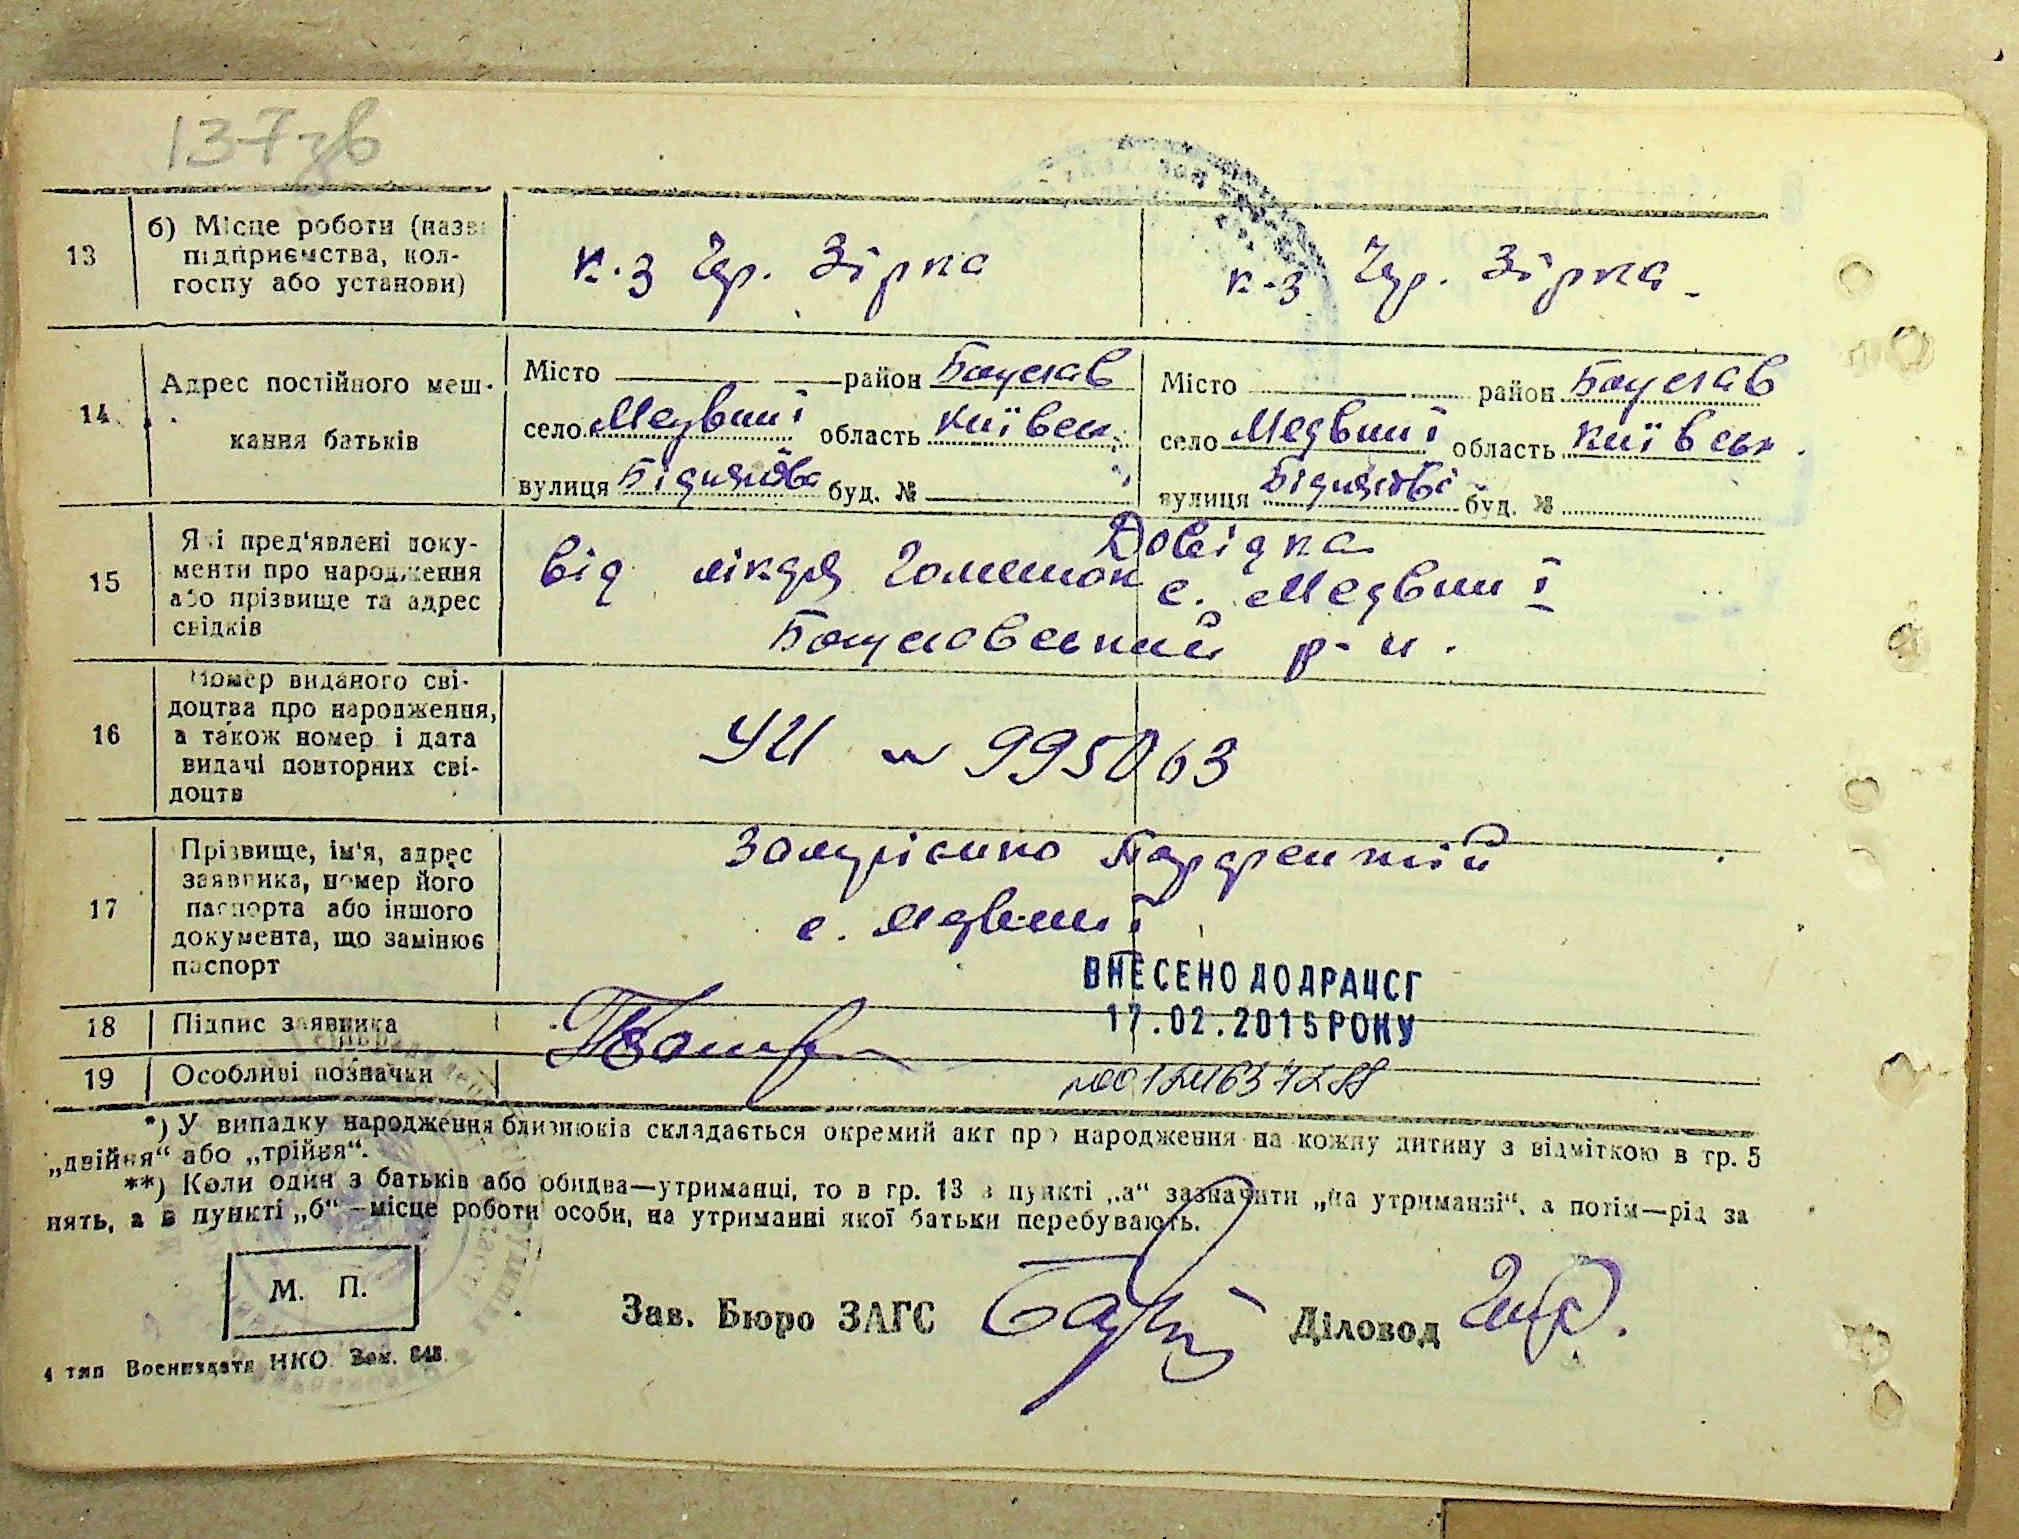 137зв
13
б) Місце роботи (назв
підприємства, кол-
госпу або установи)
к-з Чер. Зірка
к-з Чер. Зірка
14
Адрес постійного меш-
кання батьків
Місто район Богуслав
село Медвин і область Київськ.
вулиця буд. №
Місто район Богуслав
село Медвин і область Київськ.
вулиця буд. №
15
Які пред'явлені доку-
менти про народження
або прізвище та адрес
свідків
Довідка
від лікаря с. Медвин і
Богуславський р-н.
16
Номер виданого сві-
доцтва про народження,
а також номер і дата
видачі повторних сві-
доцтв
УИ № 995063
17
Прізвище, ім'я, адрес
заявника, номер його
паспорта або іншого
документа, що замінює
паспорт
Парфентій
с. Медвин і
ВНЕСЕНО ДО ДРАЦСГ
17.02.2015 РОКУ
18
Підпис заявника
19
Особливі позначки
*) У випадку народження близнюків складається окремий акт про народження на кожну дитину з відміткою в гр. 5
„двійня“ або „трійня“.
**) Коли один з батьків або обидва—утриманці, то в гр. 13 в пункті „а“ зазначити „на утриманні“, а потім—рід за
нять, а в пункті „б“—місце роботи особи, на утриманні якої батьки перебувають.
М. П.
Зав. Бюро ЗАГС
Діловод
4 тип Воениздата НКО. Зам. 848.